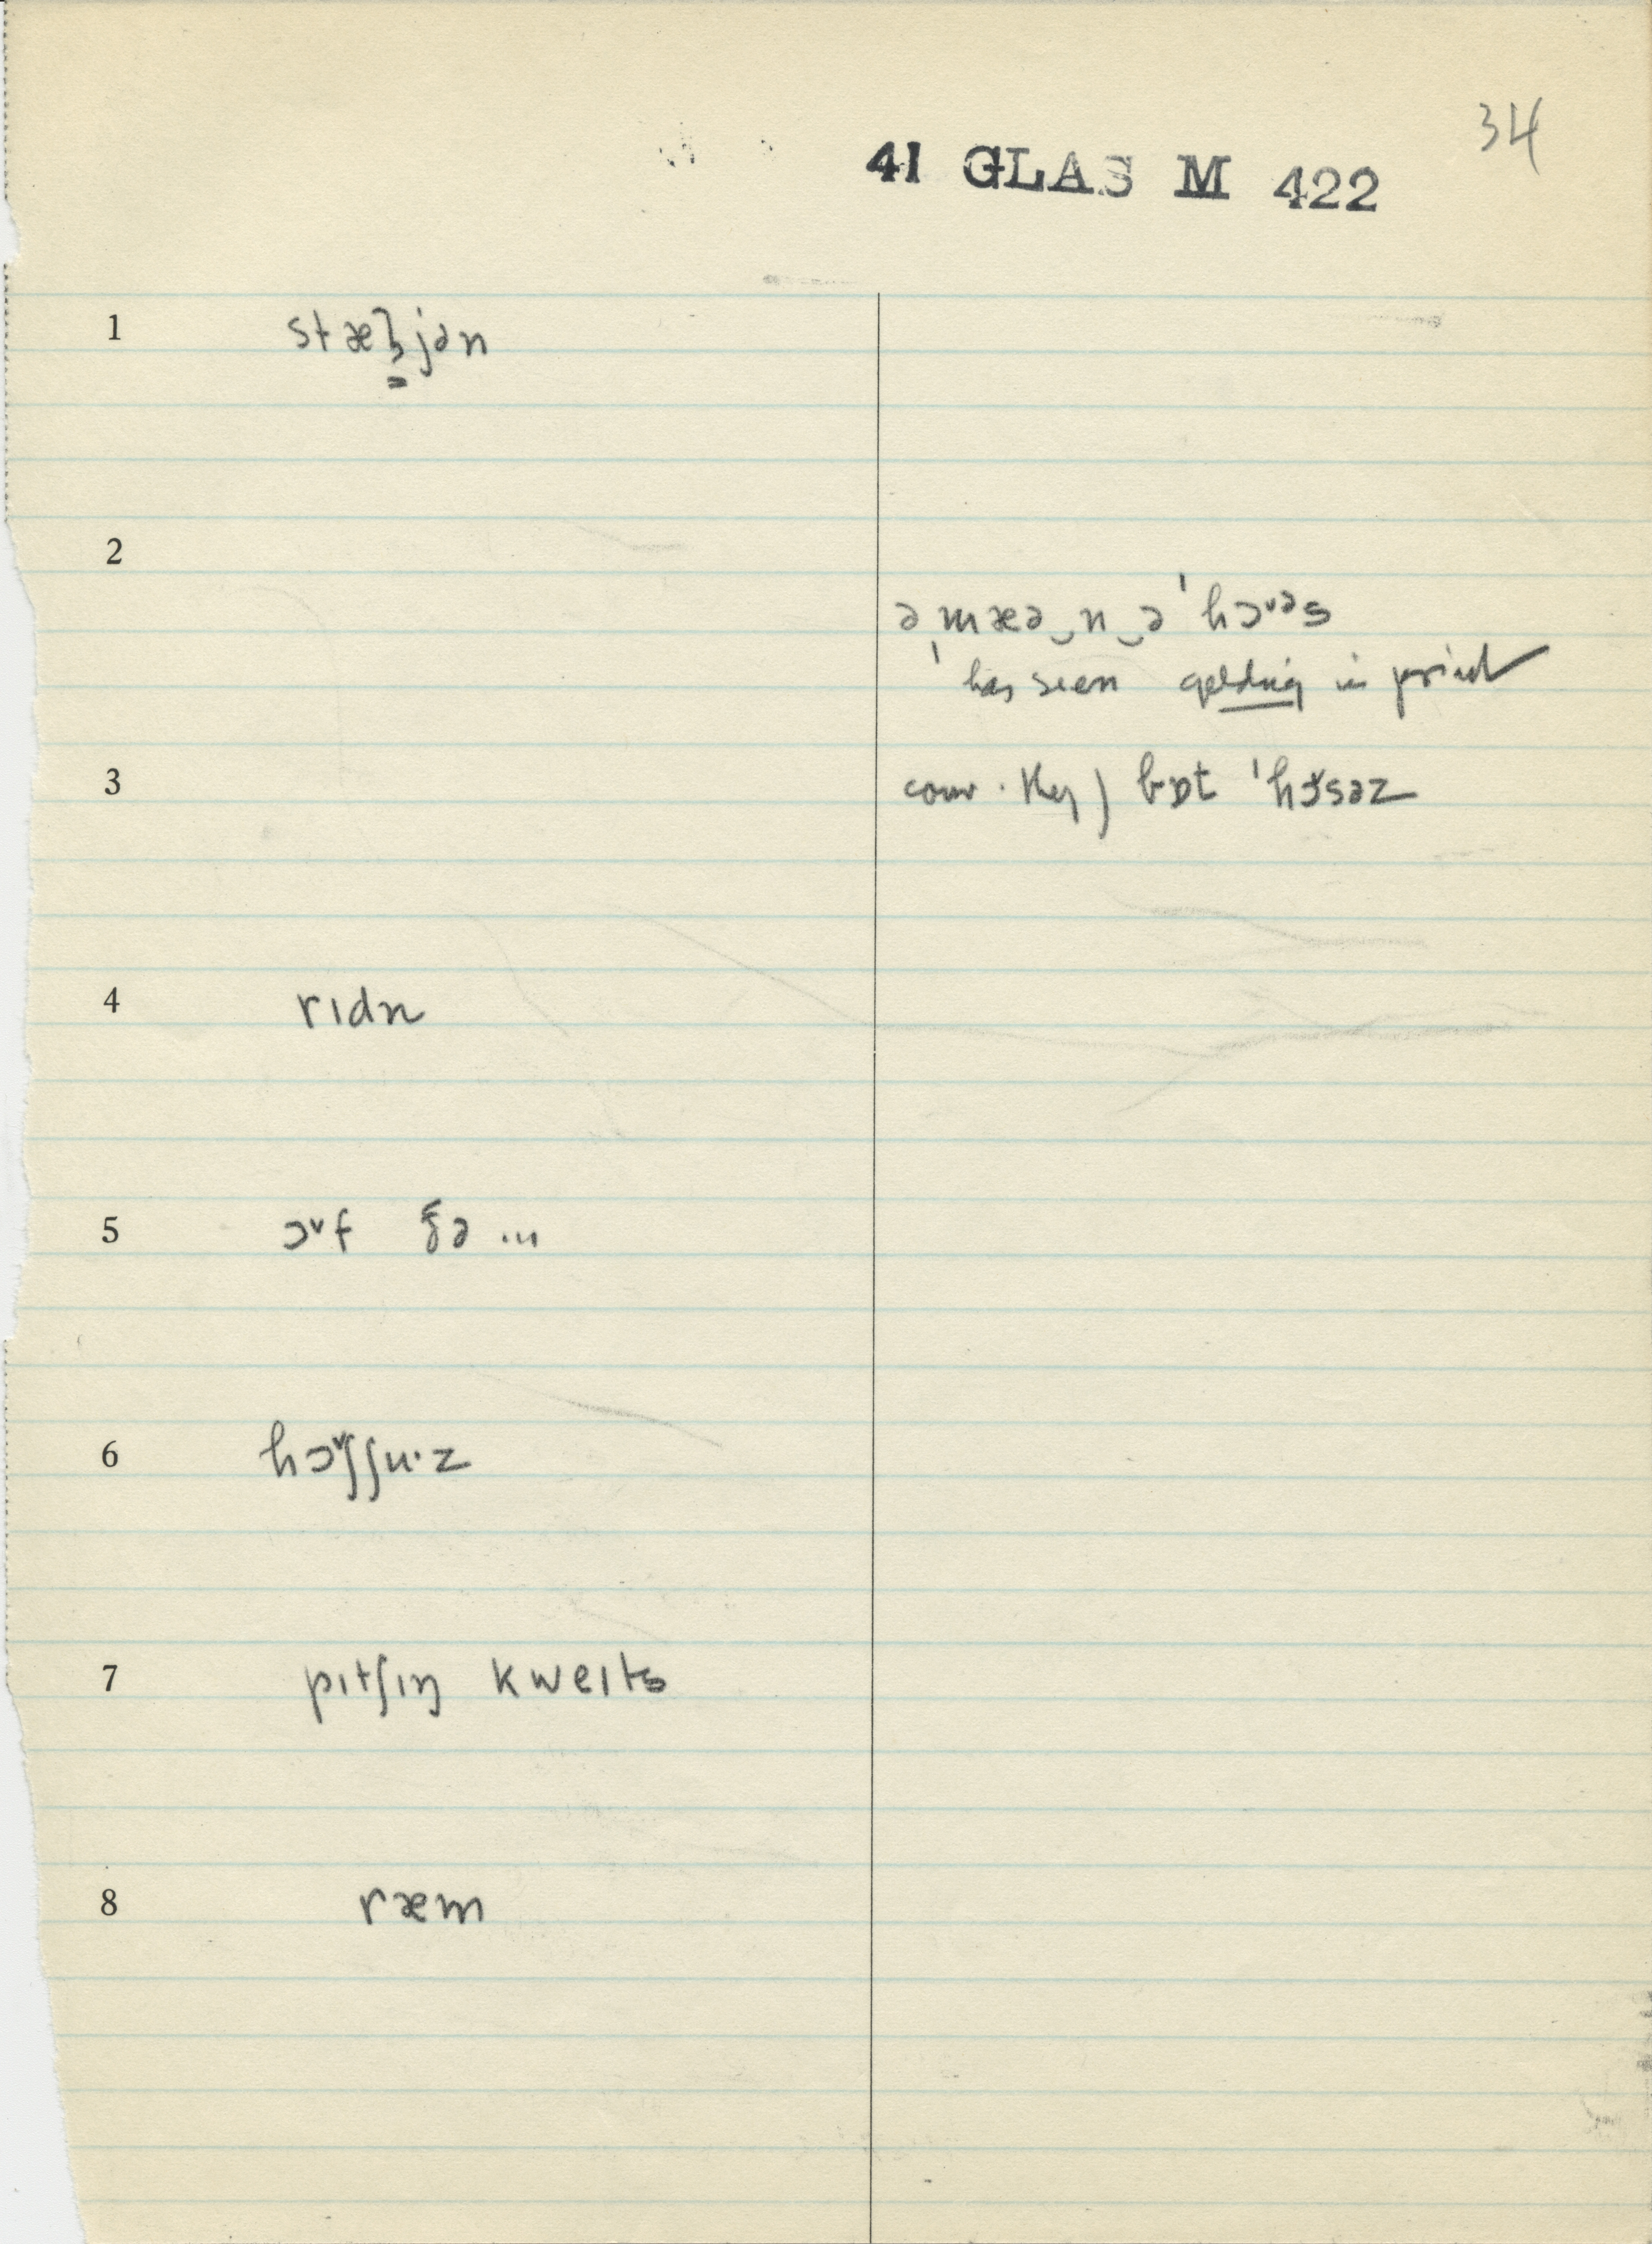 34
41 GLAS M 422
1 stæljən
2
ə ˌmæə‿n‿ə ˈhɔᵛəs
has seen gelding in print
3 conv. Key) bɒt ˈhɔᵛsəz
4 rɪdn
5 ɔᵛf ðə ...
6 hɔᵛʃʃuˑz
7 pɪtʃɪŋ kweɪts
8 ræm